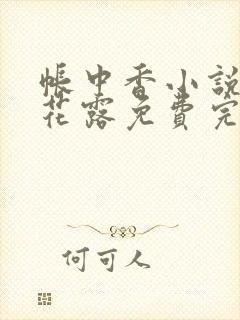 帳中香小說
花露免費完
何可人